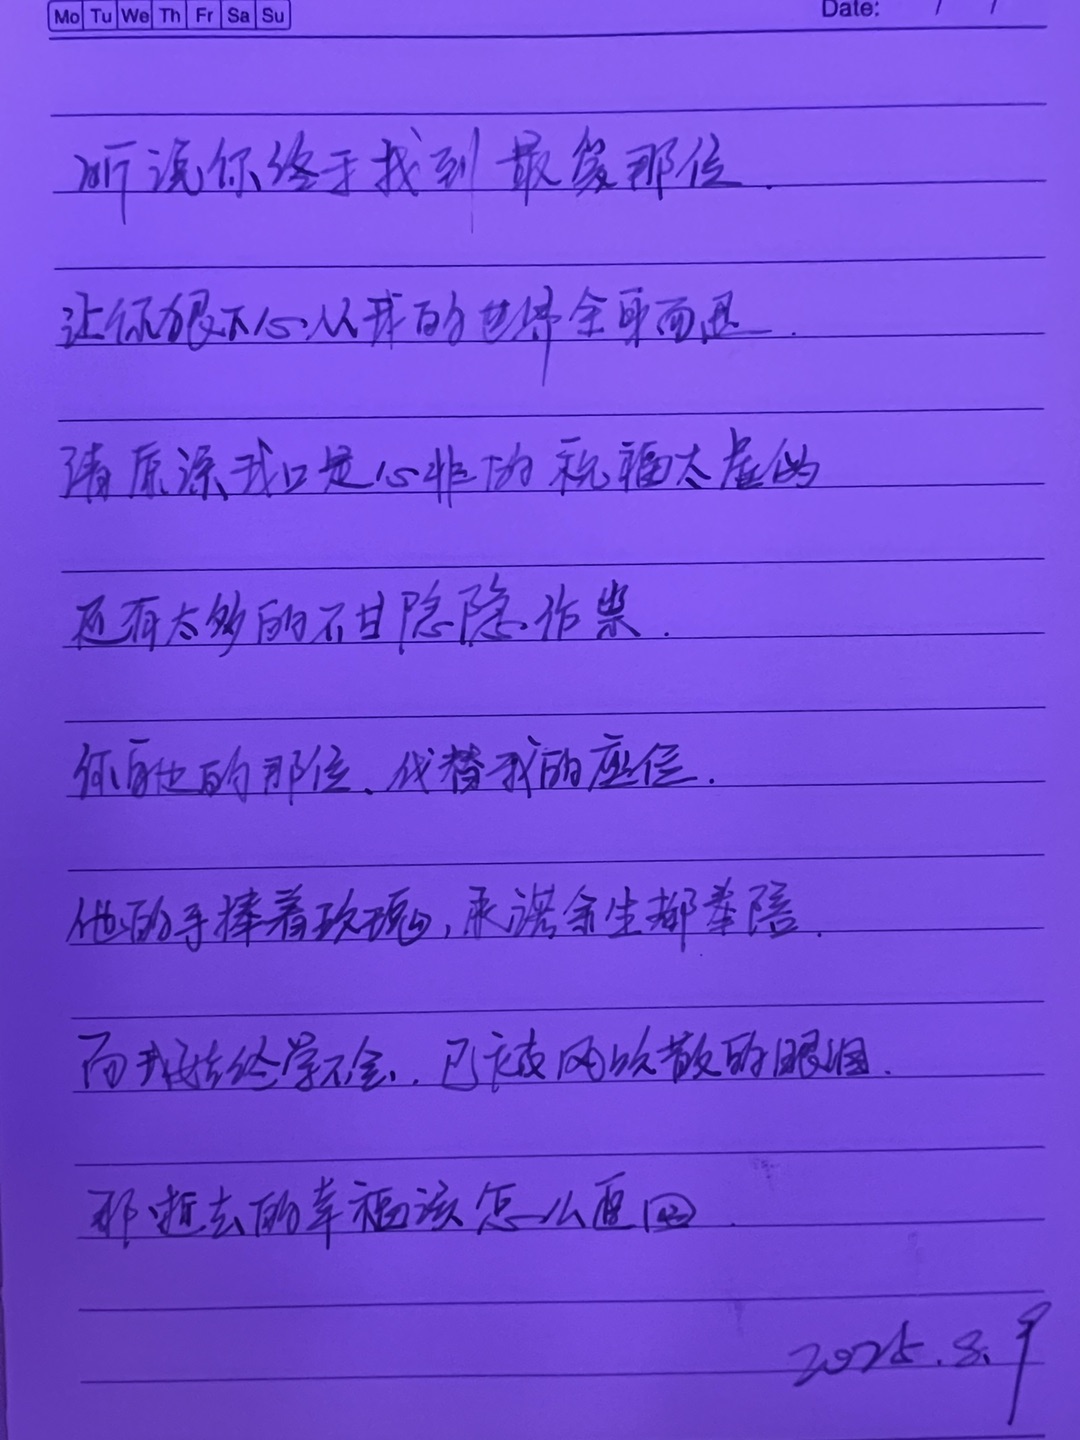 Mo Tu We Th Fr Sa Su Date: / /
听说你终于找到最爱那位.
让你狠下心从我的世界全身而退.
请原谅我口是心非的祝福太虚伪
还有太多的不甘隐隐作祟.
你身旁的那位、代替我的座位.
他的手捧着玫瑰,承诺余生都奉陪.
而我始终学不会.已被风吹散的眼泪.
那逝去的幸福该怎么要回.
2025.8.9